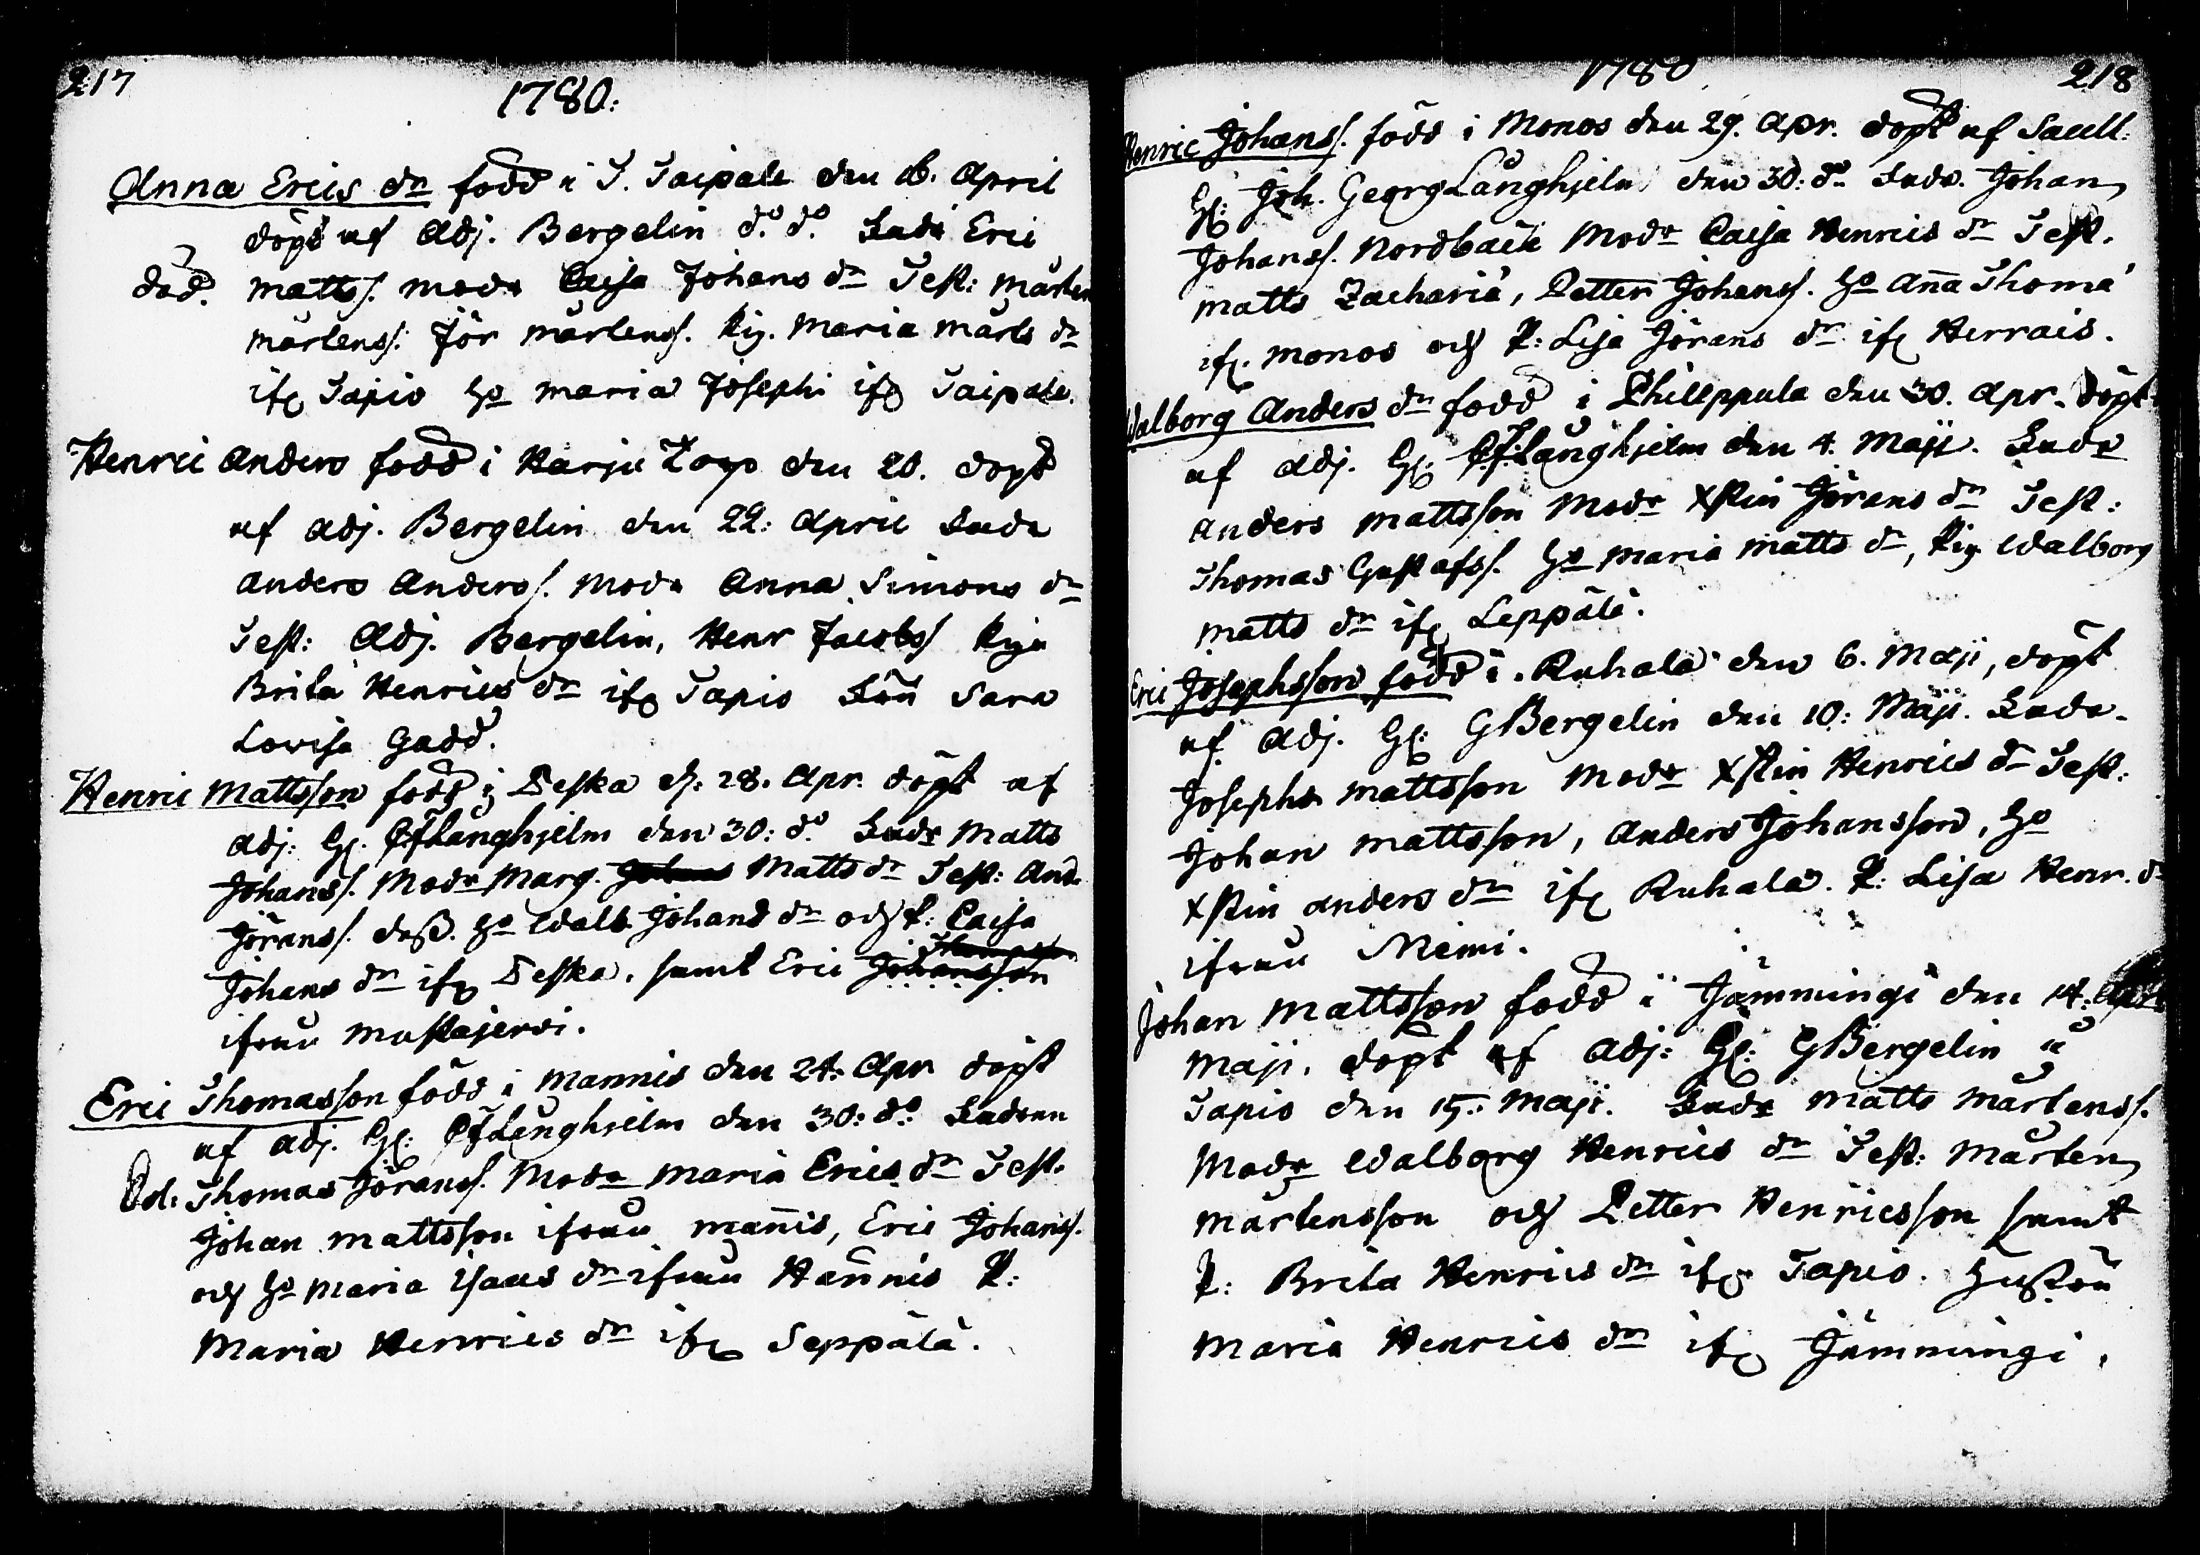 217
1780.
Anna Erics dr född i S. Saipale den 16. April
döpt af Adj. Bergelin do do fadr Eric
död. Matts. modr Caisa Johans dr Test: Mårten
Mårtenss. Jör Mårtenss. Pig. Maria Mårts dr
ifr Sapio Ho Maria Josephi ifr Saipale.
Henric Anders född i Harju Torp den 20. döpt
af Adj. Bergelin den 22: April fadr
Anders Anderss. Modr Anna Simons dr
Test: Adj. Bergelin, Henr Jacobs Piga
Brita Henrics dr ifr Sapio Sara
Lovisa Gadd.
Henric Mattsson född i Peska d. 28. Apr. döpt af
Adj: H: CfLånghjelm den 30: do fadr Matts
Johanss. Modr Marg. Johans Matts dr Test: And.
Jöranss. dess Ho Walb. Johans dr och P: Caisa
Johans dr ifr Peska. samt Eric Johansson
ifrån Mustajervi.
Eric Thomasson född i Mannis den 24. Apr döpt
af Adj. H: CfLånghjelm den 30: do fadren
Thomas Jöranss. Modr Maria Erics dr Test.
Johan Mattsson ifrån Mannis, Eric Johanss.
och Ho Maria Isacs dr ifrån Hannis P:
Maria Henrics dr ifr Seppälä.
1780
218
Henric Johanss. född i Monos den 29. Apr. döpt af Sacell:
H: Joh. Georg Långhjelm den 30: do fadr. Johan
Johanss. Nordbäck Modr Caisa Henrics dr Test.
Matts Zachariæ, Petter Johanss. Ho Anna Thomæ
ifr. Monos och P: Lisa Jörans dr ifr Herrais.
Walborg Anders dr född i Philppula den 30. Apr. döpt
af Adj. H: CfLånghjelm den 4. Maji. fadr
Anders Mattsson Modr Xstin Jörans dr Test:
Thomas Gustafss. Ho Maria Matts dr, Pig Walborg
Matts dr ifr Leppälä.
Eric Josephsson född i Ruhala den 6. Maji, döpt
af Adj. H: GBergelin den 10: Maji. fadr.
Josephs Mattsson Modr Xstin Henrics dr Test:
Johan Mattsson, Anders Johansson, Ho
Xstin Anders dr ifr Ruhala. P: Lisa Henr. dr
ifrån Niemi.
Johan Mattsson född i Jämmingi den 14.
Maji. döpt af Adj: H: GBergelin i
Sapio den 15: Maji. fadr Matts Mårtenss.
Modr Walborg Henrics dr Test: Mårten
Mårtensson och Petter Henricsson samt
P: Brita Henrics dr ifr Sapio. Hustru
Maria Henrics dr ifr Jämmingi.